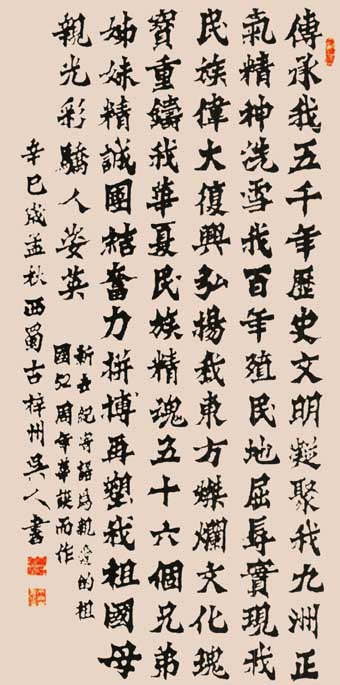 傳承我五千年歷史文明凝聚我九州正
氣精神洗雪我百年殖民地屈辱實現我
民族偉大復興弘揚我東方燦爛文化瑰
寶重鑄我華夏民族精魂五十六個兄弟
姊妹精誠團結奮力拼博再塑我祖國母
親光彩驕人姿英
新世紀寄語為親愛的祖
國52周年華誕而作
辛巳歲孟秋西蜀古梓州吳人書